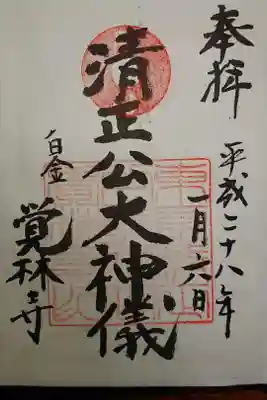 奉拝
平成二十八年
一月六日
清正公大神儀
白金
覚林寺